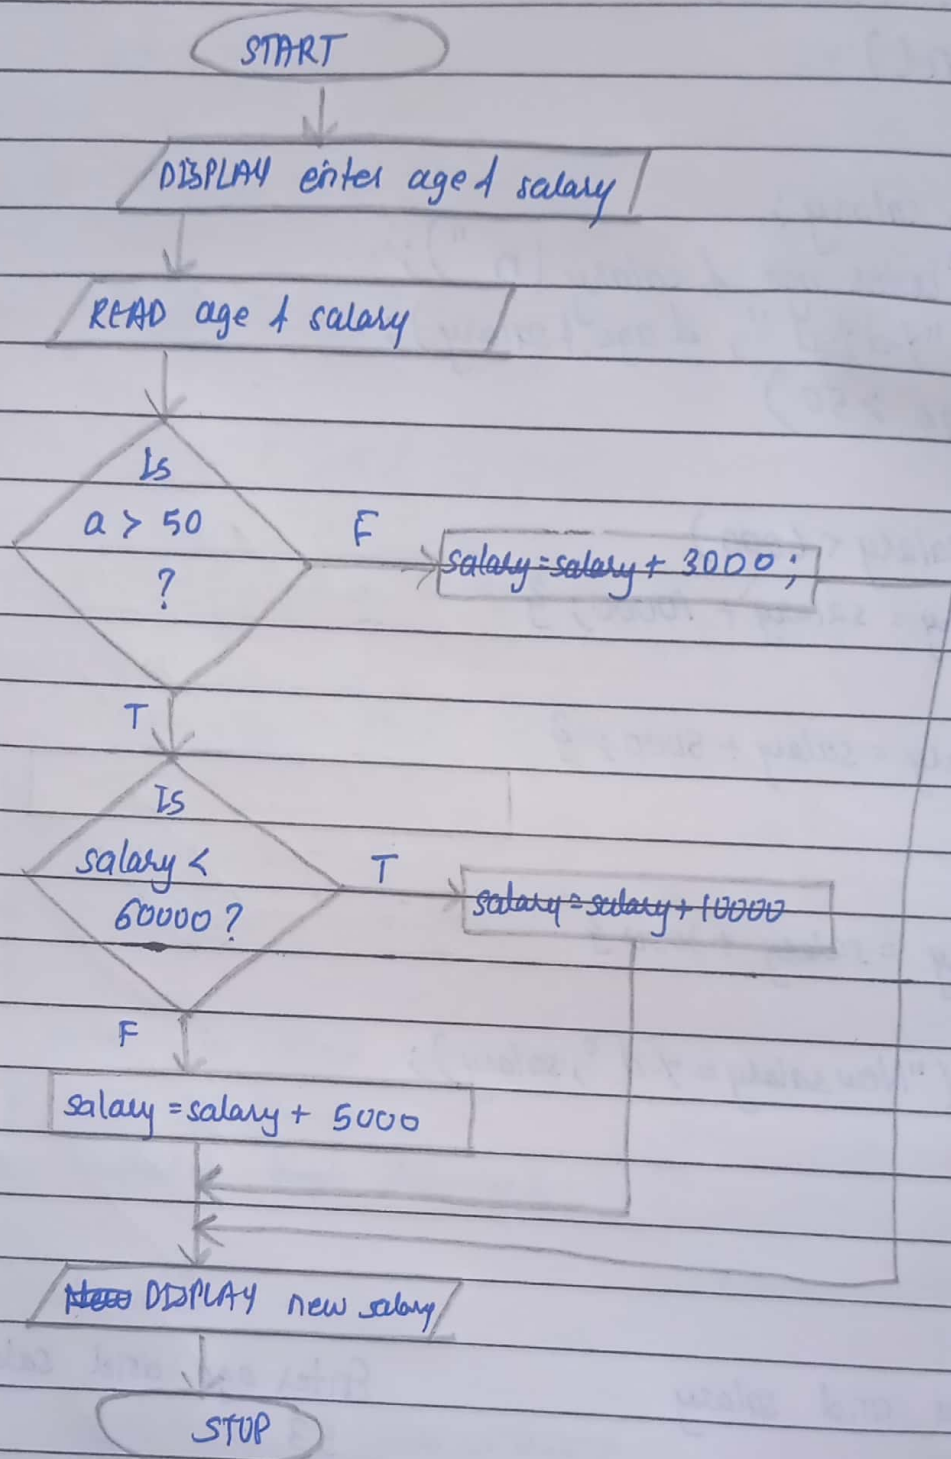 START
DISPLAY enter age & salary
READ age & salary
Is
a > 50
?
F
salary=salary + 3000;
T
Is
salary <
60000?
T
salary=salary+10000
F
salary=salary + 5000
DISPLAY new salary
STOP